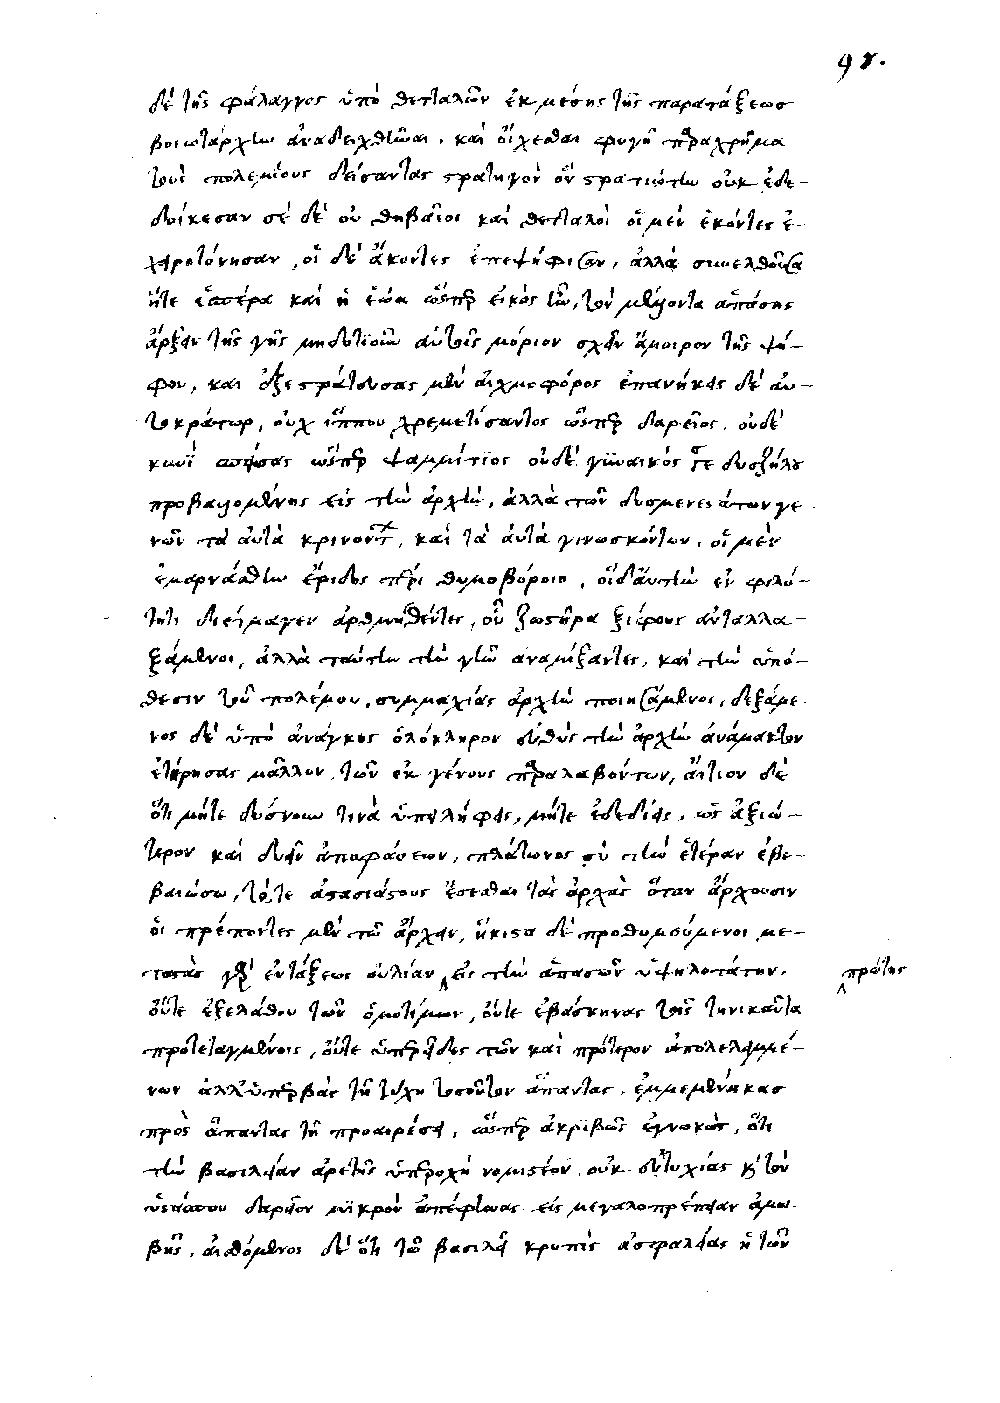 98.
δὲ τῆς φάλαγγος ὑπὸ θετταλῶν ἐκ μέσης τῆς παρατάξεως
βοιωταρχεῖν ἀναδειχθῆναι, καὶ οἴχεσθαι φυγῇ παραχρῆμα
τοὺς πολεμίους δείσαντας στρατηγὸν ὃν στρατιώτην οὐκ ἐδε-
δοίκεσαν σὲ δὲ οὐ θηβαῖοι καὶ θετταλοὶ οἱ μὲν ἑκόντες ἐ-
χειροτόνησαν, οἱ δὲ ἄκοντες ἐπεψήφισαν, ἀλλὰ συνελθοῦσα
ἥτε ἑσπέρα καὶ ἡ ἑώα ὥσπερ εἰκὸς ἦν, τὸν μέλλοντα ἁπάσης
ἄρξειν τῆς γῆς μηδοτιοῦν αὐτοῖς μόριον σχεῖν ἄμοιρον τῆς ψή-
φου, καὶ ἐξεστράτευσας μὲν αἰχμοφόρος ἐπανήκεις δὲ αὐ-
τοκράτωρ, οὐχ ἵππου χρεμετίσαντος ὥσπερ δαρεῖος, οὐδὲ
κυνῆ σπείσας ὥσπερ ψαμμίτιχος οὐδὲ γυναικός σε δυσζήλου
προβαλλομένης εἰς τὴν ἀρχὴν, ἀλλὰ τῶν δυσμενεστάτων γε
νῶν τὰ αὐτὰ κρινόντων, καὶ τὰ αὐτὰ γινωσκόντων, οἱ μὲν
ἐμαρνάσθην ἔριδος πέρι θυμοβόροιο, οἱ δ'αὐτὴν ἐν φιλό-
τητι διέτμαγεν ἀρθμηθέντες, οὐ ζωστῆρα ξίφους ἀνταλλα-
ξάμενοι, ἀλλὰ ταύτην τὴν γῆν ἀναμίξαντες, καὶ τὴν ὑπό-
θεσιν τοῦ πολέμου, συμμαχίας ἀρχὴν ποιησάμενοι, δεξάμε
νος δὲ ὑπὸ ἀνάγκης ὁλόκληρον εὐθὺς τὴν ἀρχὴν ἀνάμακτον
ἐτήρησας μᾶλλον τῶν ἐκ γένους παραλαβόντων, αἴτιον δὲ
ὅτι μήτε δύσνουν τινὰ ὑπείληφας, μήτε ἐδεδίεις, ὡς ἀξιώ-
τερον καὶ δυεῖν ἀποφάσεων, πλάτωνος σὺ τὴν ἑτέραν ἐβε-
βαίωσω, τότε ἀστασιάστους ἔσεσθαι τὰς ἀρχὰς ὅταν ἄρχουσιν
οἱ πρέποντες μὲν τῷ ἄρχειν, ἥκιστα δὲ προθυμούμενοι, με-
ταστὰς γὰρ ἐν τάξεως εὐλίαν εἰς τὴν ἁπασῶν ὑψηλοτάτην,
πρώτης
οὔτε ἐξελάθου τῶν ὁμοτίμων, οὔτε ἐβάσκηνας τοῖς τηνικαῦτα
προτεταγμένοις, οὔτε ὑπερεῖδες τῶν καὶ πρότερον ἀπολελειμμέ-
νων ἀλλ' ὑπερβὰς τῇ τύχῃ τοσοῦτον ἅπαντας, ἐμμεμένηκας
πρὸς ἅπαντας τῇ προαιρέσει, ὥσπερ ἀκριβῶς ἐγνωκὼς, ὅτι
τὴν βασιλείαν ἀρετῆς ὑπεροχὴ νομιστέον, οὐκ εὐτυχίας καὶ τὸν
ὑσπάσου δαρεῖον μικρὸν ἀπέφηνας εἰς μεγαλοπρέπειαν ἀμοι
βῆς, αἰσθόμενοι δὲ ὅτι τῷ βασιλεῖ κρηπὶς ἀσφαλείας ἡ τῶν